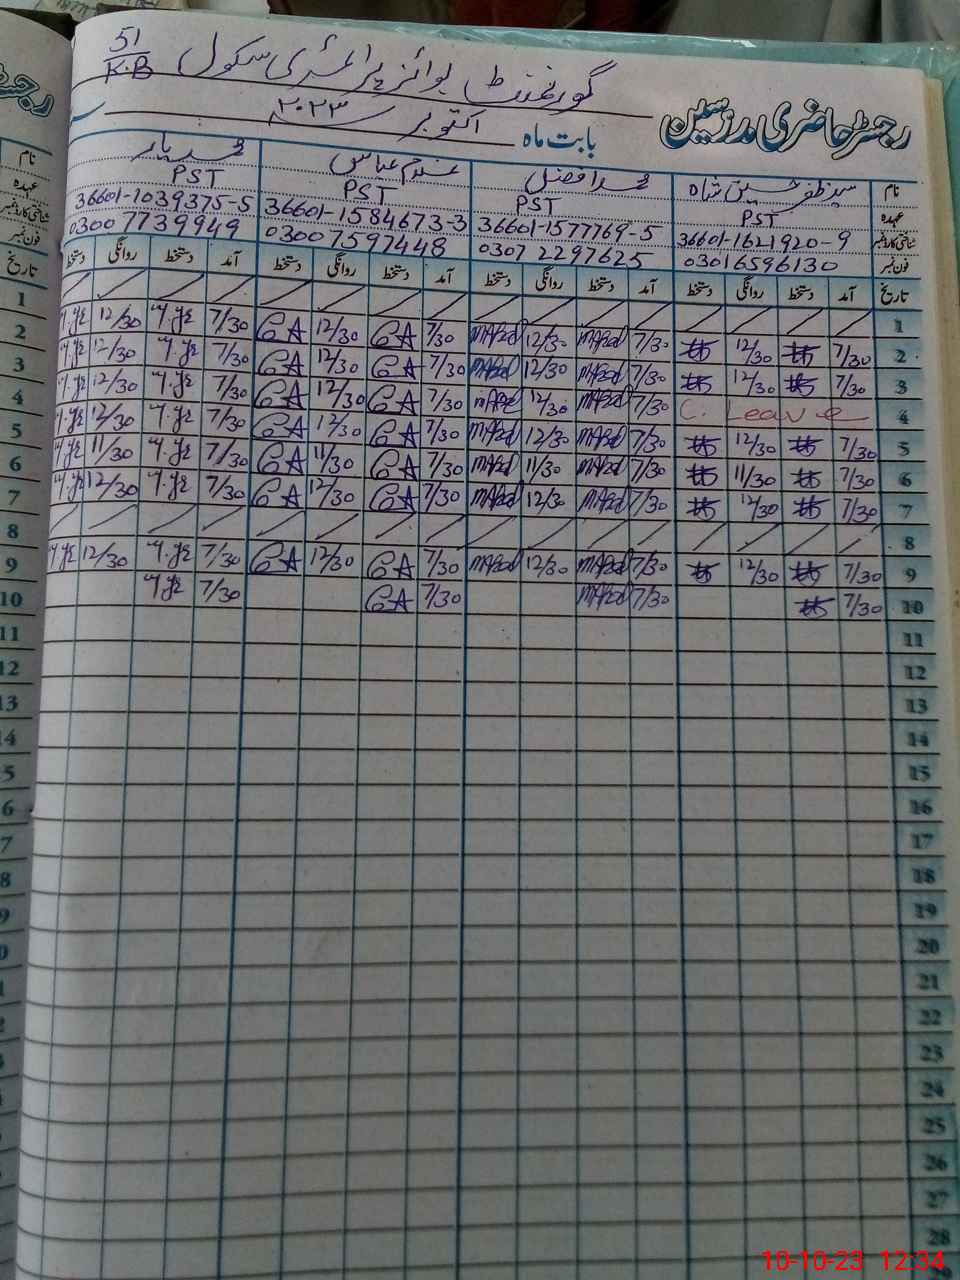 گورنمنٹ بوائز پرائمری سکول 51/K.B
رجسٹر حاضری مدرسین بابت ماہ اکتوبر ۲۰۲۳
نام سید ظفر حسین شاہ محمد افضل غلام عباس محمد یار
عہدہ PST PST PST PST
شناختی کارڈ نمبر 36601-1621920-9 36601-1577769-5 36601-1584673-3 36601-1039375-5
فون نمبر 03016596130 03072297625 03007597448 03007739949
تاریخ آمد دستخط روانگی دستخط آمد دستخط روانگی دستخط آمد دستخط روانگی دستخط آمد دستخط روانگی دستخط
1
2 7/30 12/30 7/30 12/30 7/30 GA 12/30 GA 7/30 12/30
3 7/30 12/30 7/30 12/30 7/30 GA 12/30 GA 7/30 12/30
4 C. Leave 7/30 12/30 7/30 GA 12/30 GA 7/30 12/30
5 7/30 12/30 7/30 12/30 7/30 GA 12/30 GA 7/30 12/30
6 7/30 11/30 7/30 11/30 7/30 GA 11/30 GA 7/30 11/30
7 7/30 12/30 7/30 12/30 7/30 GA 12/30 GA 7/30 12/30
8
9 7/30 12/30 7/30 12/30 7/30 GA 12/30 GA 7/30 12/30
10 7/30 7/30 7/30 GA 7/30
11
12
13
14
15
16
17
18
19
20
21
22
23
24
25
26
27
28
10-10-23 12:34